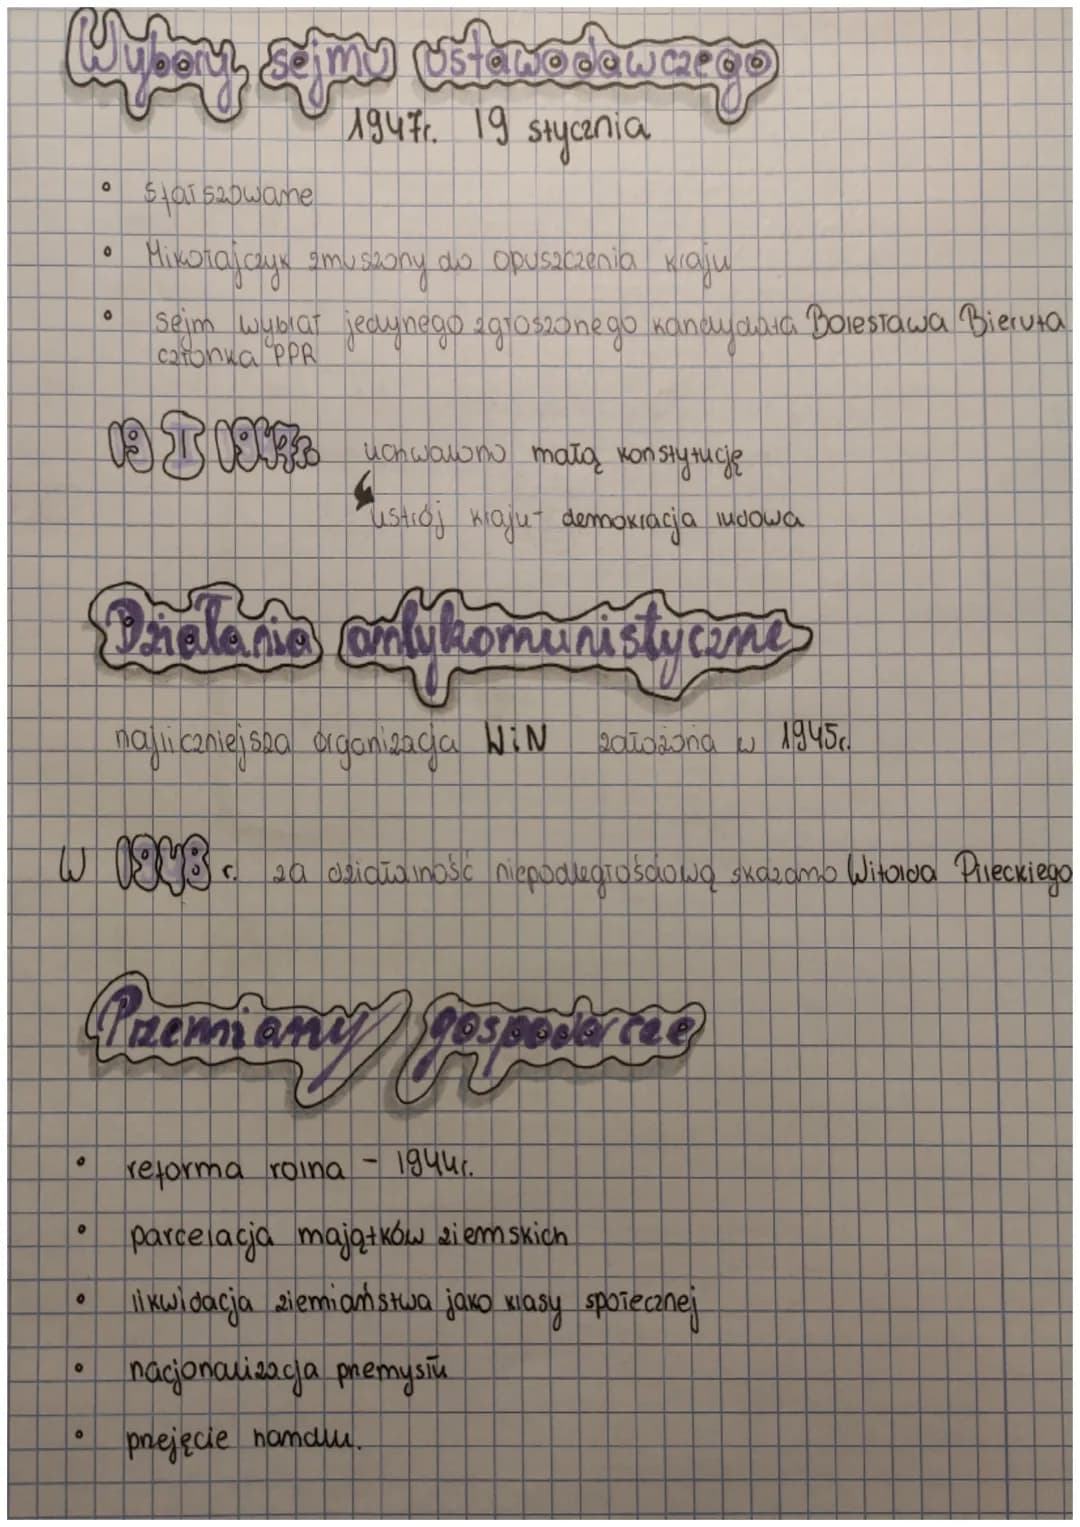 Wybory sejmu ustawodawczego
1947r. 19 stycznia
• sfałszowane
• Mikołajczyk zmuszony do opuszczenia kraju
• sejm wybrał jedynego zgłoszonego kandydata Bolesława Bieruta
członka PPR
19 II 1947r. uchwalono małą konstytucję
ustrój kraju - demokracja ludowa
Działania antykomunistyczne
najliczniejsza organizacja WiN założona w 1945r.
W 1948 r. za działalność niepodległościową skazano Witolda Pileckiego
Przemiany gospodarcze
• reforma rolna - 1944r.
• parcelacja majątków ziemskich
• likwidacja ziemiaństwa jako klasy społecznej
• nacjonalizacja przemysłu
• przejęcie handlu.